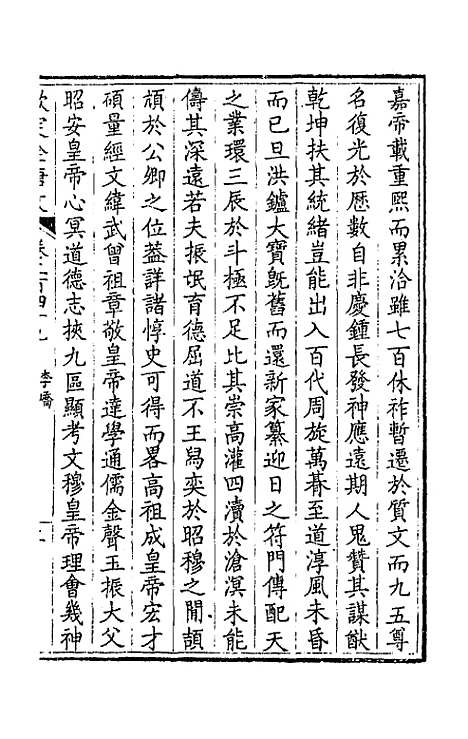 嘉帝載重熙而累洽雖七百休祚暫遷於質文而九五尊
名復光於歷數自非慶鍾長發神應遠期人鬼贊其謀猷
乾坤扶其統緒豈能出入百代周旋萬朞至道淳風未昏
而已旦洪鑪大寶旣舊而還新家纂迎日之符門傳配天
之業環三辰於斗極不足比其崇高灌四瀆於滄溟未能
儔其深遠若夫振氓育德屈道不王舄奕於昭穆之閒頡
頏於公卿之位葢詳諸惇史可得而畧高祖成皇帝宏才
碩量經文緯武曾祖章敬皇帝達學通儒金聲玉振大父
昭安皇帝心冥道德志挾九區顯考文穆皇帝理會幾神
欽定全唐文 卷二百四十九 李嶠